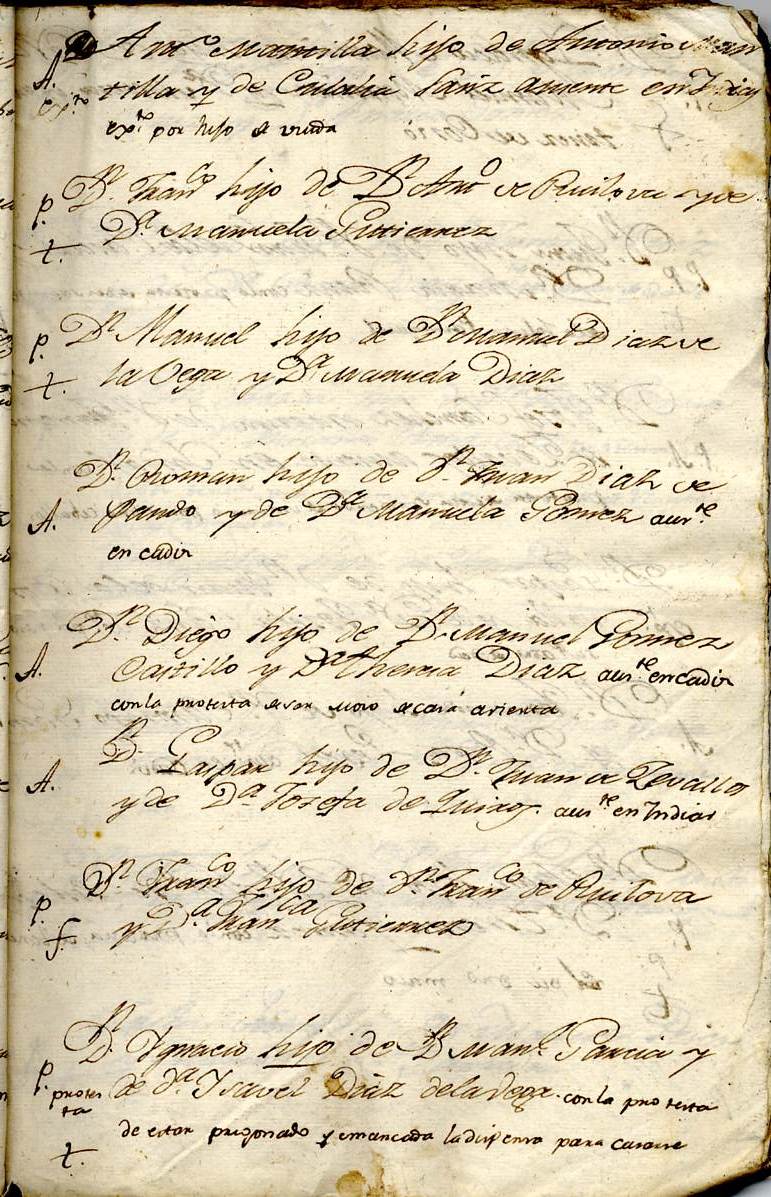 Ant.o Mantilla hijo de Antonio Man
A. tilla y de Eulalia Sainz ausente en Indias
ex.to ex.to por hijo de viuda
D.n Fran.co hijo de D.n Ant.o de Ruilova y de
p. D.a Manuela Gutierrez
t.
p. D.n Manuel hijo de D.n Manuel Diaz de
t. la Vega y D.a Manuela Diaz
D.n Roman hijo de d.n Juan Diaz de
A. Pando y de D.a Manuela Gomez aus.te
en cadiz
D.n Diego hijo de D.n Manuel Gomez
A. Castillo y D.a theresa Diaz aus.te en cadiz
con la protesta de ser
D.n Gaspar hijo de D.n Juan de Zevallos
A. y de D.a Josefa de Quiros. aus.te en Indias
D.n Fran.co hijo de d.n Fran.co de Ruilova
p. y D.a Fran.ca Gutierrez
f.
D.n Ygnacio hijo de D.n Man.l Garcia y
p. de d.a Ysavel Diaz de la Vega. con la protesta
protes
ta
de estar y la dispensa para casarse
t.